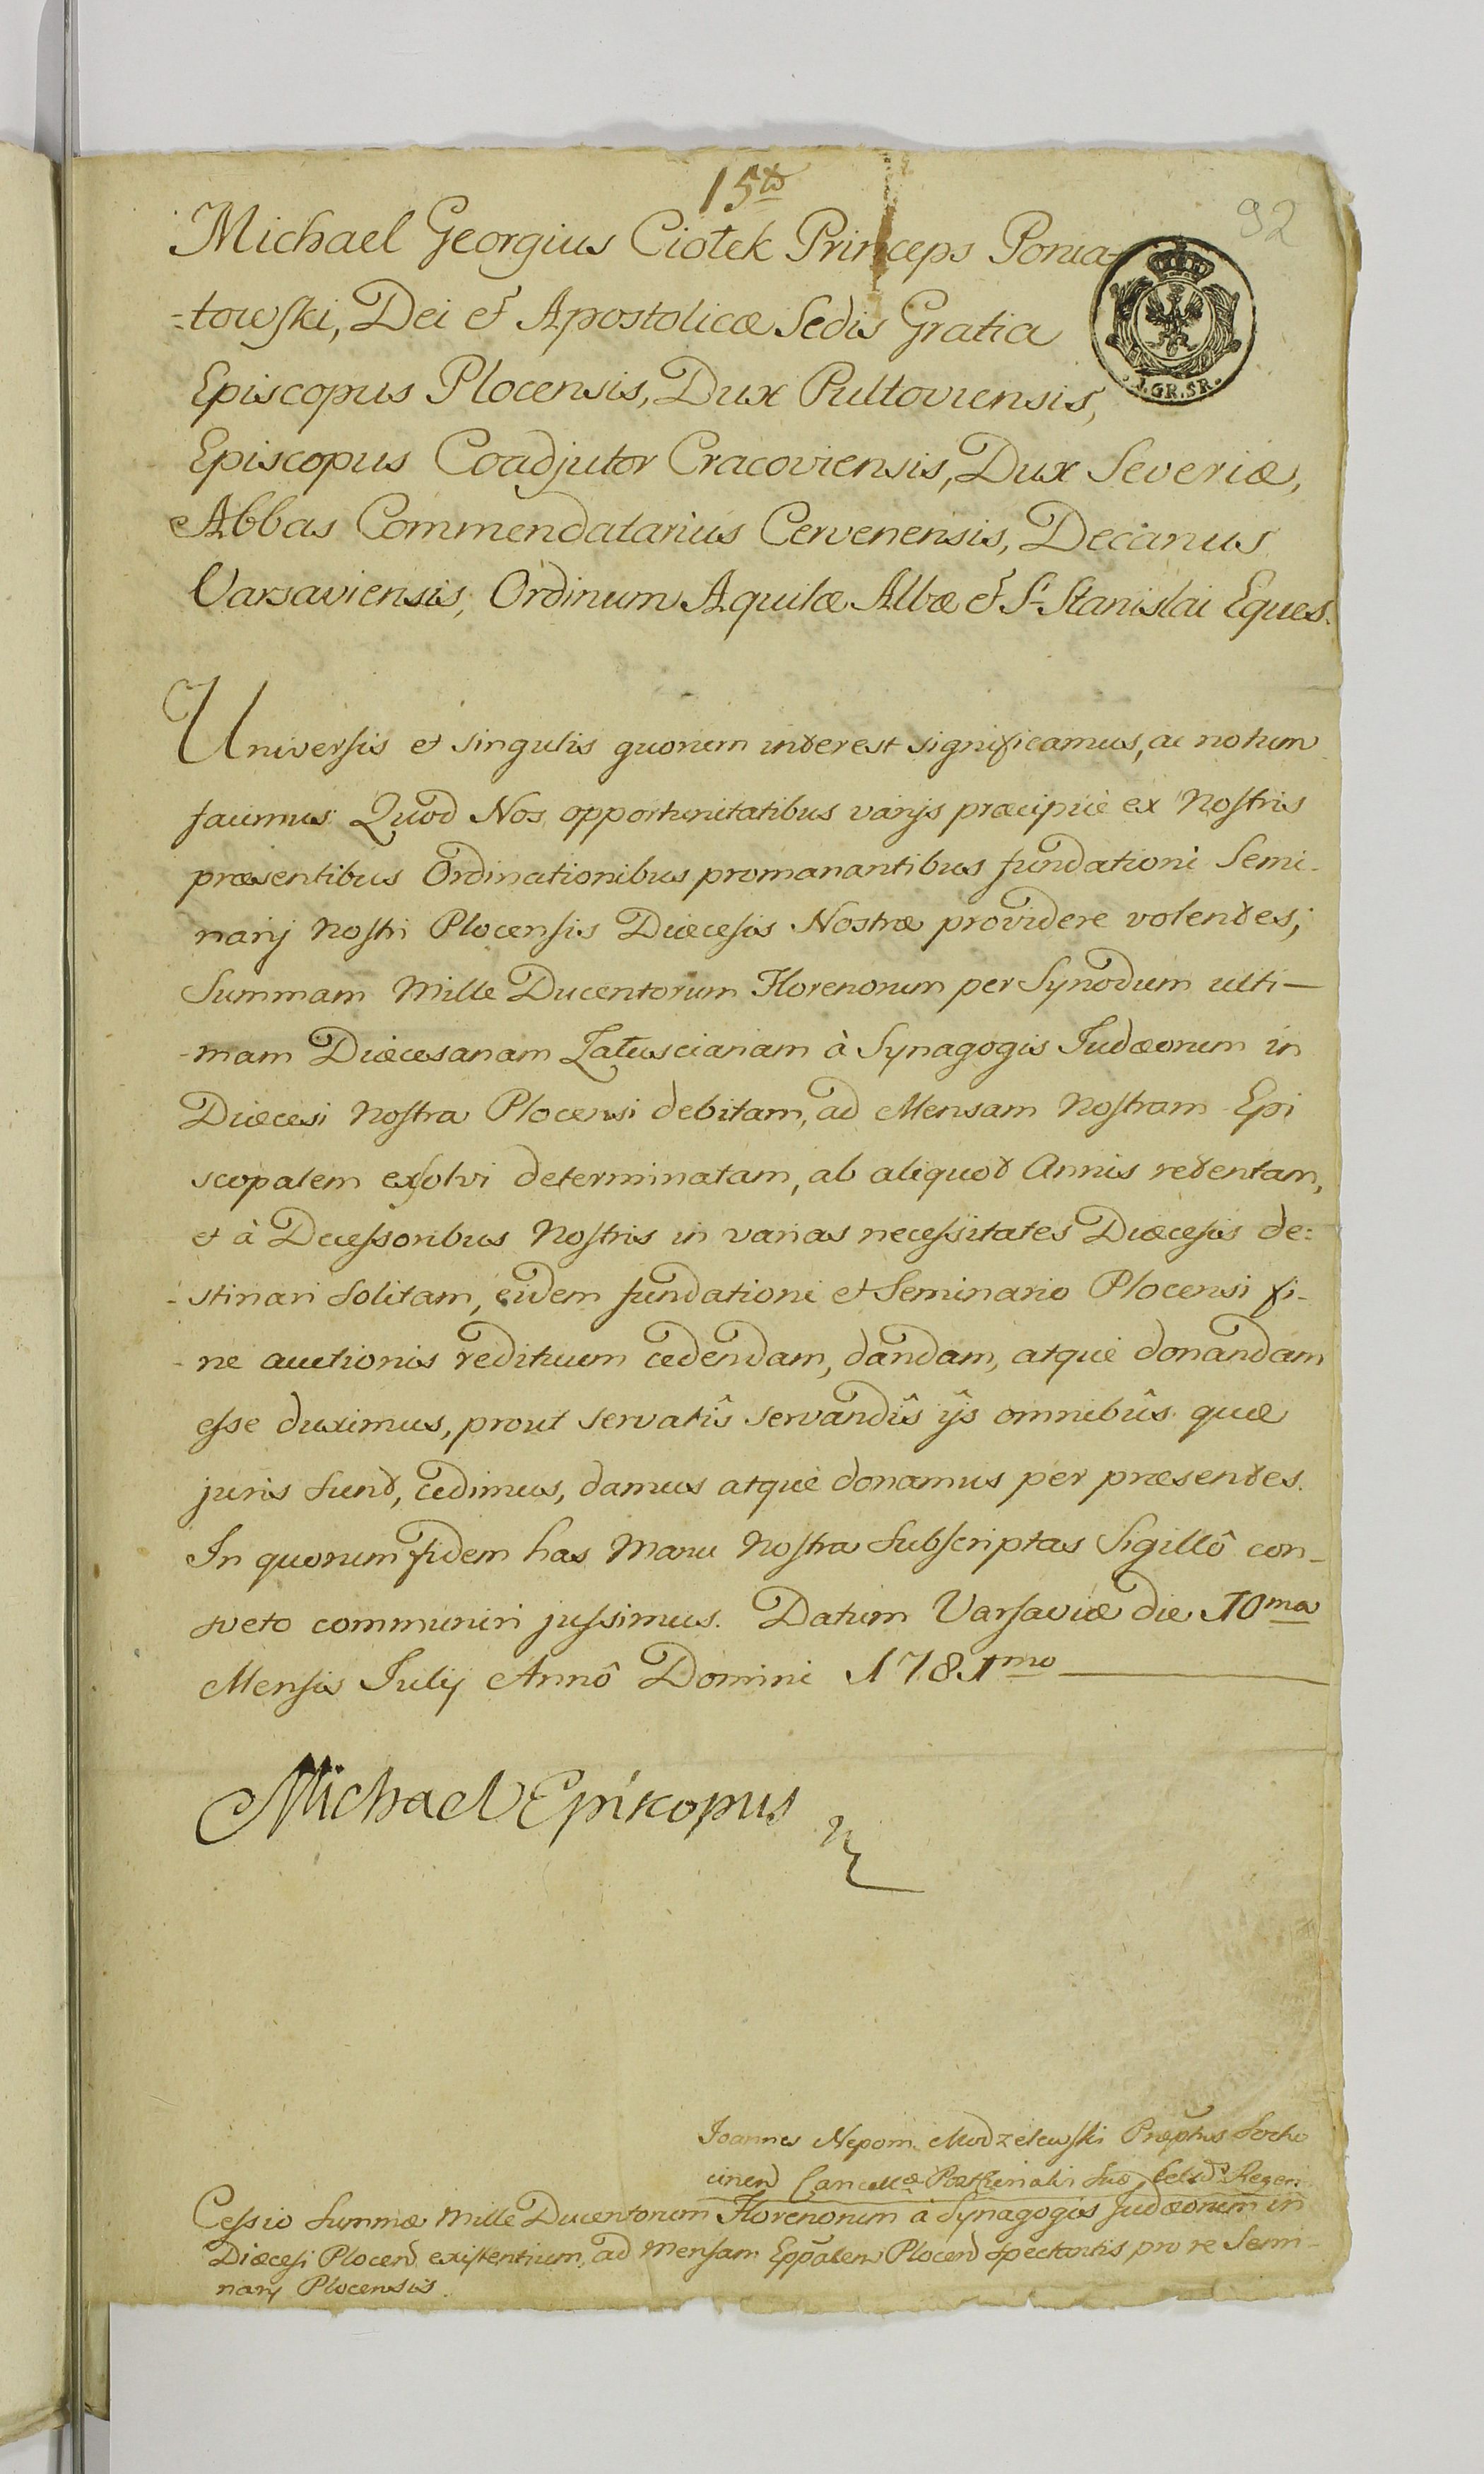 15to
92
Michael Georgius Ciołek Princeps Ponia-
=towski, Dei et Apostolicæ Sedis Gratia
Episcopus Plocensis, Dux Pultoviensis,
Episcopus Coadjutor Cracoviensis, Dux Severiæ,
Abbas Commendatarius Cervenensis, Decanus
Varsaviensis, Ordinum Aquilæ Albæ et S. Stanislai Eques.
GR. SR.
Universis et singulis quorum interest significamus, ac notum
facimus: Quod Nos opportunitatibus varijs præcipuè ex Nostris
præsentibus Ordinationibus promanantibus fundationi Semi-
narij Nostri Plocensis Diæcesis Nostræ providere volentes;
Summam Mille Ducentorum Florenorum per Synodum ulti-
-mam Diæcesanam Załuscianam à Synagogis Judæorum in
Diæcesi Nostra Plocensi debitam, ad Mensam Nostram Epi
scopalem exsolvi determinatam, ab aliquot Annis retentam,
et à Dcessoribus Nostris in varias necessitates Diæcesis de=
-stinari solitam, eidem fundationi et Seminario Plocensi fi-
-ne auctionis redituum cedendam, dandam, atque donandam
esse duximus, prout servatîs servandîs ijs omnibûs quæ
juris sunt, cedimus, damus atque donamus per præsentes.
In quorum fidem has Manu Nostra subscriptas Sigillô con-
sveto communiri jussimus. Datum Varsaviæ die 10ma
Mensis Julij Annô Domini 1781mo
Michael Episcopus
Joannes Nepom. Modzelewski Præptus Socho
cinen Cancellæ
Cessio Summæ Mille Ducentorum Florenorum à Synagogis Judæorum in
Diæcesi Plocen existentium, ad Mensam Eppalem Plocen spectantis pro re Semi-
narij Plocensis.